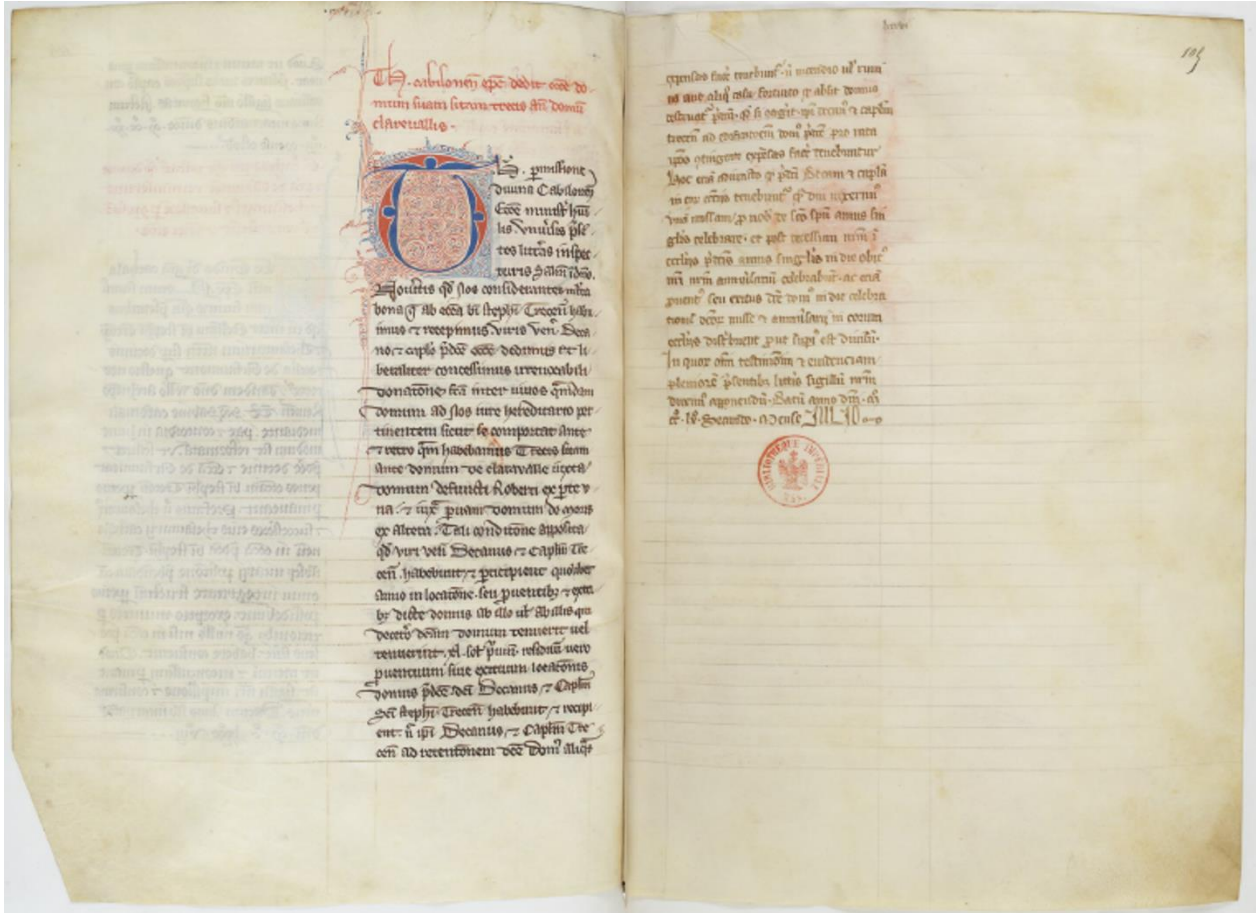 Th. cabilonen̄ ep̄c dedit ecc̄e do-
mum suam sitam trecis añ domū
clarevallis.
Th. p̱missione
divina Cabiloneñ
Ecc̄e minist̄ hum̄
lis. Univ̄sis p̄sē
tes litt̄as inspec-
turis Salt̄m ī dn̄o.
Noveritis qd̓ nos considerantes
bona q̄ ab ecc̄a b̄i steph̄i Trecen̄ habu-
imus ⁊ recepimus viris ven̄. Deca
no ⁊ cap̄lo p̄dc̄e ecc̄e dedimus et li-
beraliter concessimus irrevocabili
donatōne fc̄a inter vivos qm̄dam
domum ad nos iure hereditario per
tinentem sicut se comportat ante
⁊ retro qm̄ habebamus Trecis sitam
ante domum de claravalle iuxta
domum defuncti Roberti ex p̱te u
na. ⁊ iux̄ p̱vam domum de
ex altera. Tali condic̄ōne apposita
qd̓ viri ven̄ Decanus ⁊ Capl̄m Tre
cen̄. habebunt ⁊ p̱cipient quol̄ibet
anno in locatōne. seu p̱ventib₉ ⁊ exiti
b₉ dicte domus ab illo ul̓ ab illis qui
decet̓o dc̄am domum tenuerit vel
tenuerint. xl. sol̓ residuū vero
p̱ventuum sive exituum locatōnis
domus p̄dc̄e dc̄i Decanus ⁊ Capl̄m
Sc̄i steph̄i Trecen̄ habebunt ⁊ recipi
ent. n̄ ip̄i Decanus ⁊ Capl̄m Tre
cen̄ ad retentōnem dc̄e dom̓ aliq̄s
lxxvi
105
expensas fac̓e tenebunt᷑. n̄ incendio ul̓ rui
na aut aliq̄ casu fortuito
p̄dc̄m. Qd̓ si , ip̄i decan̓ ⁊ capl̄m
trecen̄ ad dom̓ p̄dc̄e pro rata
ip̄os ꝯtingente expensas fac̓e tenebuntur
Hoc eciā adiuncto qd̓ p̄dc̄i Decan̓ ⁊ capl̄m
in eor̄ ecc̄ia tenebunt᷑ qd̓ diu vixerim̓
unā missam p̱ nob̓ de sc̄o sp̄u annis sin
gl̓is celebrare. et post decessum nrm̄ ī
ecc̄l̓ia p̄dc̄a annis sing̓lis in die obit̓
nr̄i nrm̄ annivsariū celebrabunt. ac eciā
p̱vent̓ seu exitus dc̄e dom̓ in die celebra
tionis dc̄or̄ misse ⁊ annivsarij in eorum
ecc̄l̓ia dist̓buent put sup̱i᷑ est divisū.
In quor̄ om̄ testimōm̄ ⁊ evidenciam
pleniorē p̄sentib₉ litt̓is sigillū nrm̄
duxim̓ apponendū. Datū anno dn̄i. M̓
cc̓. lx̓. Secundo. Mense JULIO
BIBLIOTHEQUE IMPERIALE
MSS.